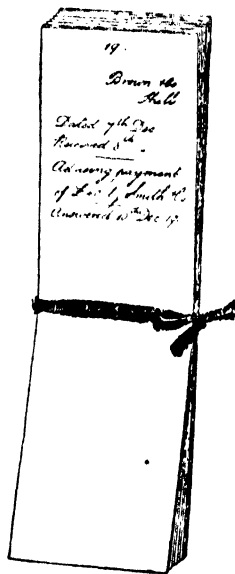 19.
Brown & Co
Dated 7th Dec
Received 8th "
Advising payment
of by Smith & Co
Answered 10th Dec 19.